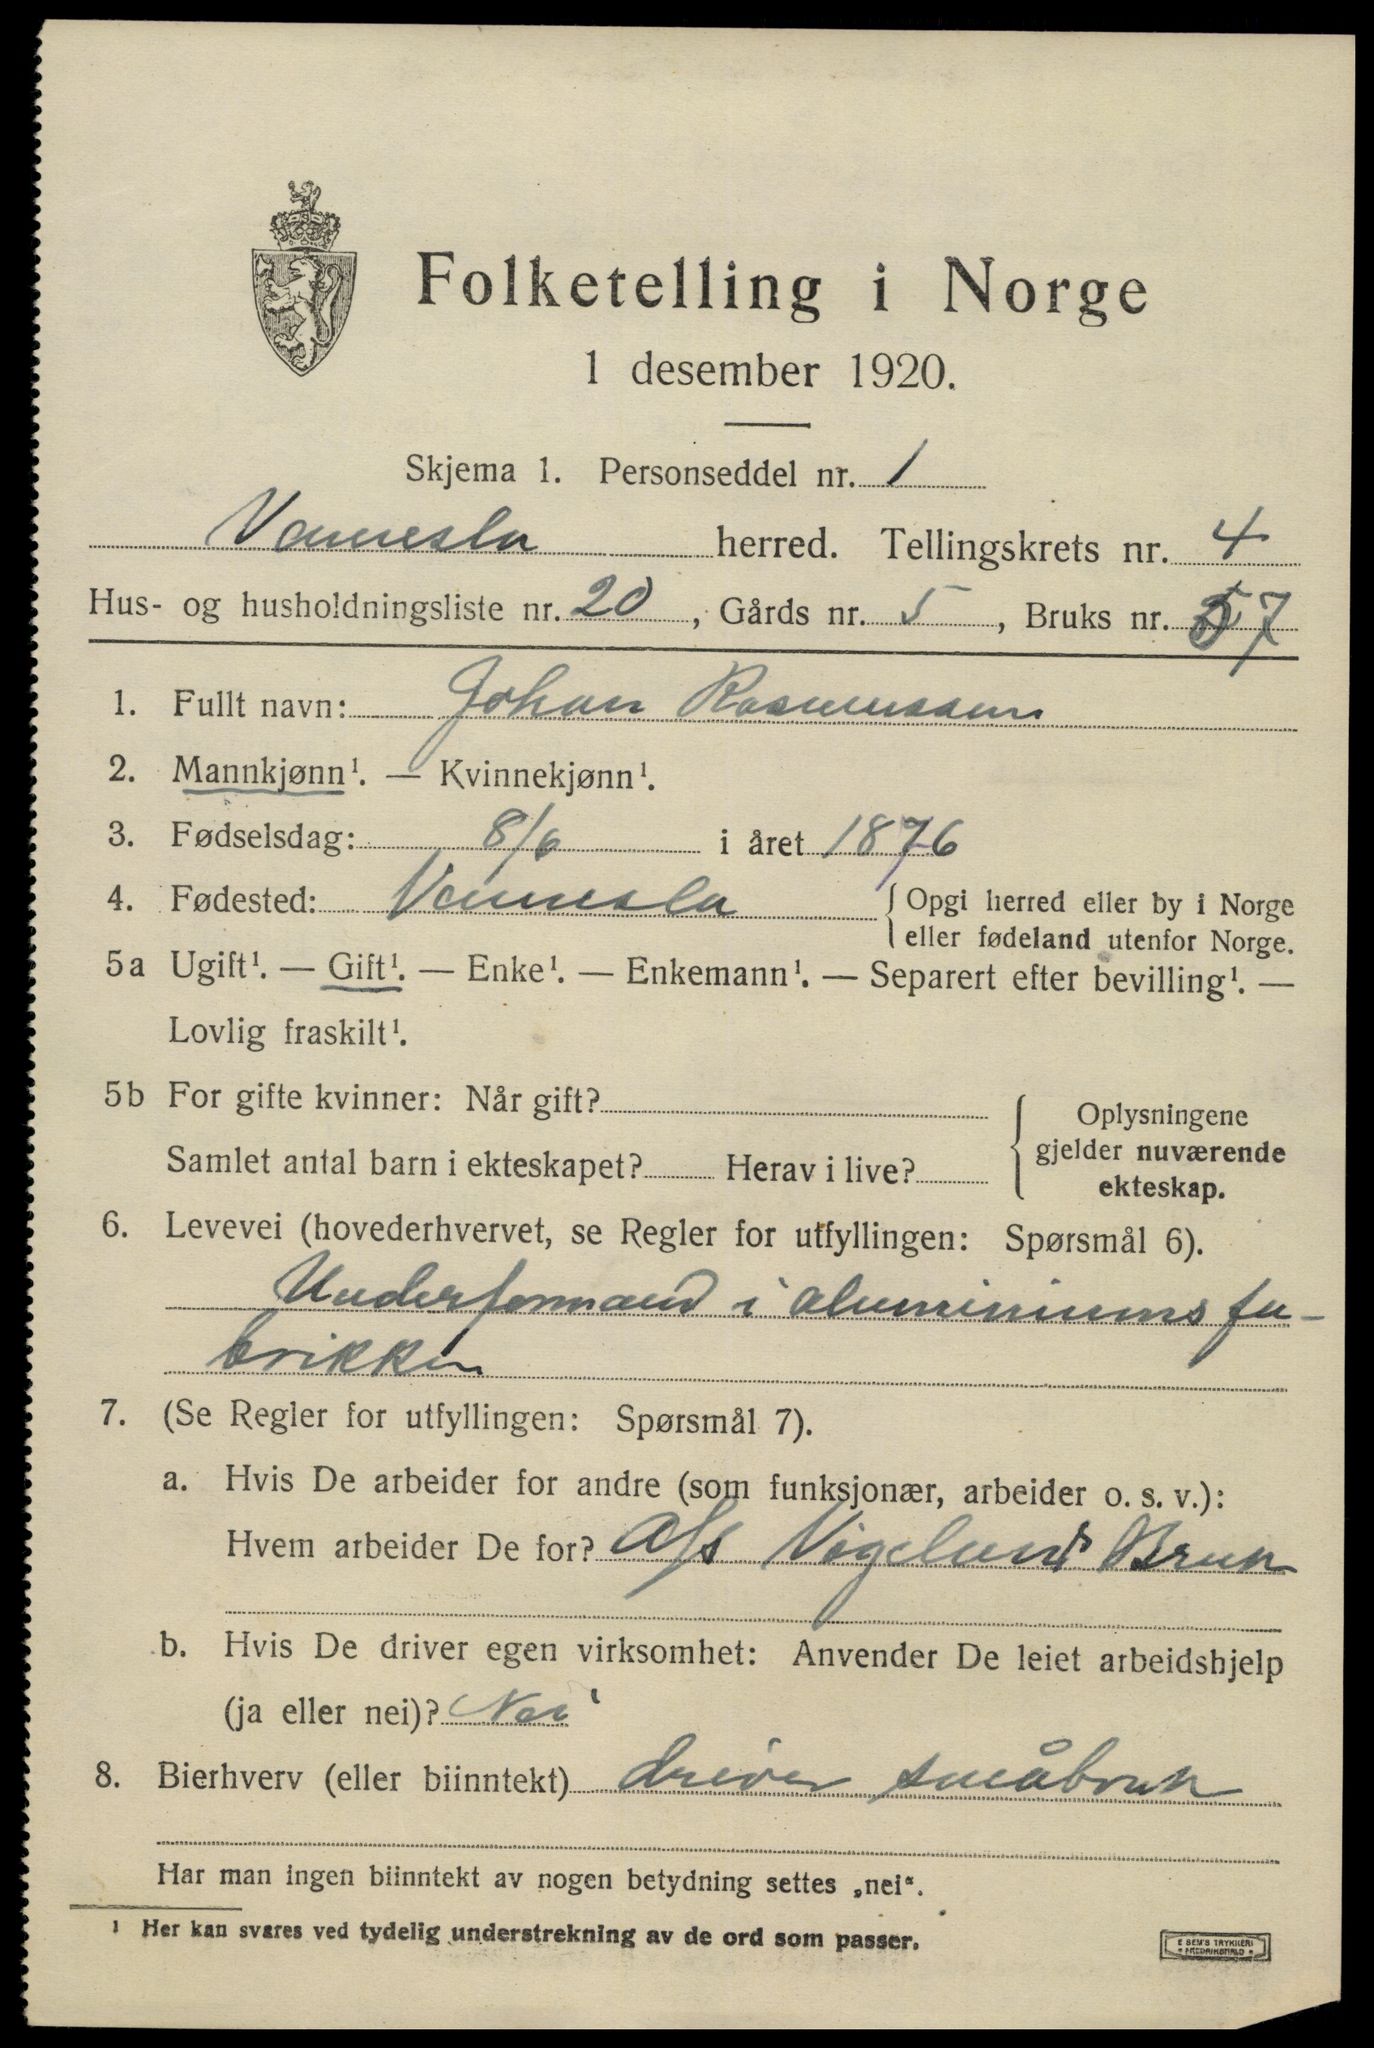 Folketelling i Norge
1 desember 1920.
Skjema 1. Personseddel nr. 1
Vennesla herred. Tellingskrets nr. 4
Hus- og husholdningsliste nr. 20, Gårds nr. 5, Bruks nr. 57
1. Fullt navn: Johan Rasmussen
2. Mannkjønn¹. — Kvinnekjønn¹.
3. Fødselsdag: 8/6 i året 1876
4. Fødested: Vennesla {Opgi herred eller by i Norge
eller fødeland utenfor Norge.
5a Ugift¹. — Gift¹. — Enke¹. — Enkemann¹. — Separert efter bevilling¹. —
Lovlig fraskilt¹.
5b For gifte kvinner: Når gift?
Samlet antal barn i ekteskapet? Herav i live?
Oplysningene
gjelder nuværende
ekteskap.
6. Levevei (hovederhvervet, se Regler for utfyllingen: Spørsmål 6).
Underformand i aluminiumsfa-
brikken
7. (Se Regler for utfyllingen: Spørsmål 7).
a. Hvis De arbeider for andre (som funksjonær, arbeider o. s. v.):
Hvem arbeider De for? A/s Vigelands Bruk
b. Hvis De driver egen virksomhet: Anvender De leiet arbeidshjelp
(ja eller nei)? Nei
8. Bierhverv (eller biinntekt) driver småbruk
Har man ingen biinntekt av nogen betydning settes „nei“.
¹ Her kan svares ved tydelig understrekning av de ord som passer.
E SEM'S TRYKKERI
• FREDRIKSHALD •